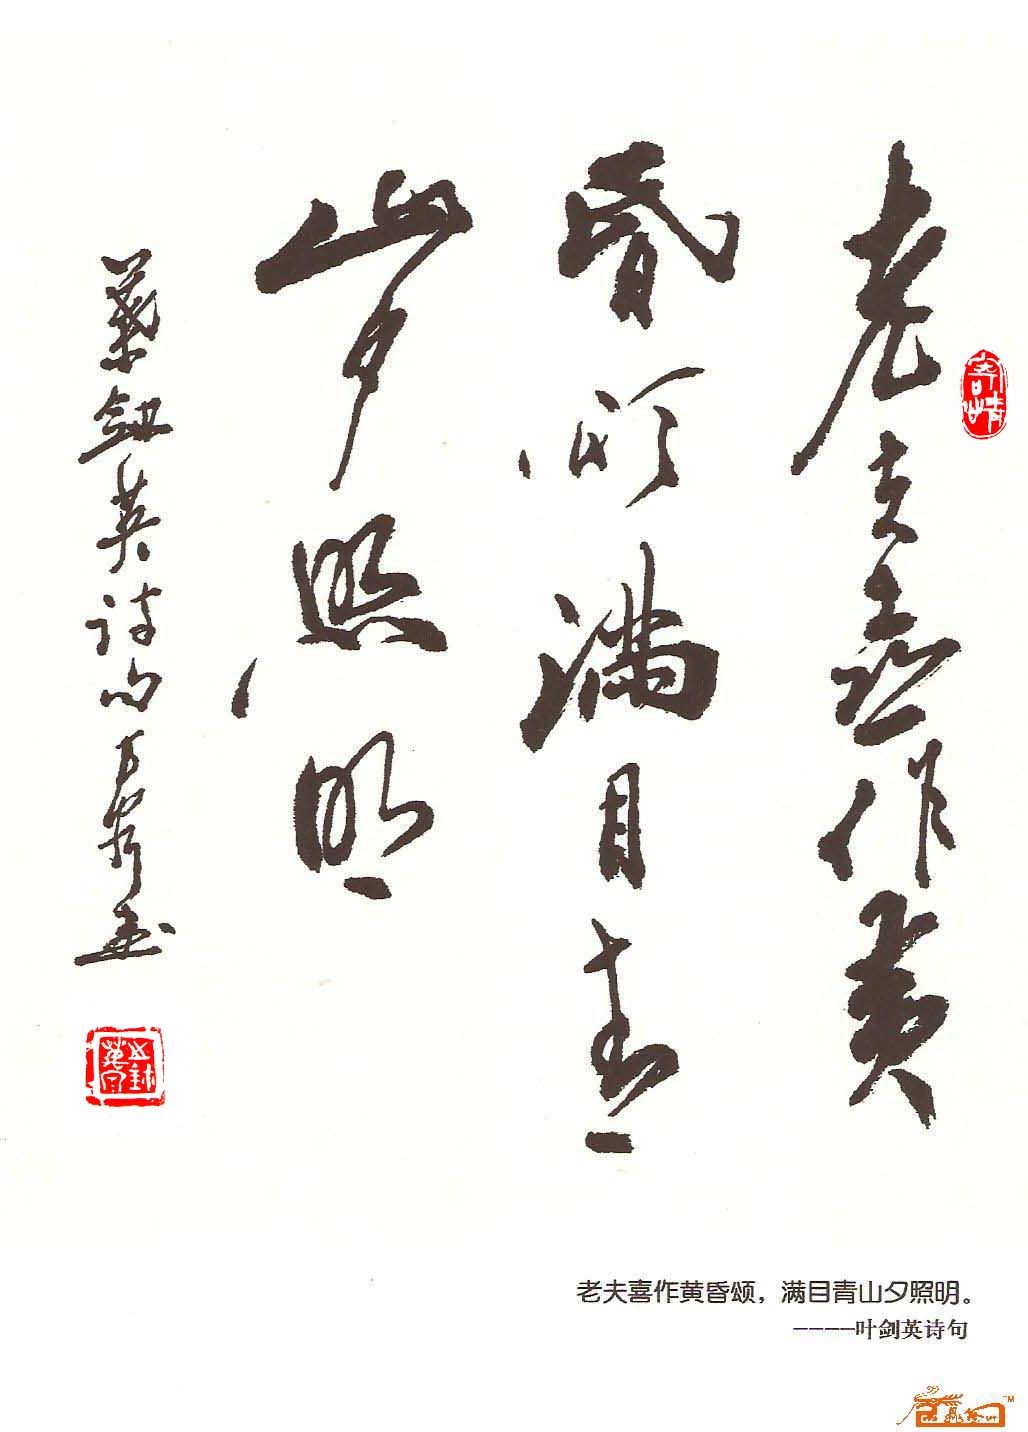 老夫喜作黄
昏颂满目青
山夕照明
叶剑英诗句
老夫喜作黄昏颂，满目青山夕照明。
————叶剑英诗句
TM